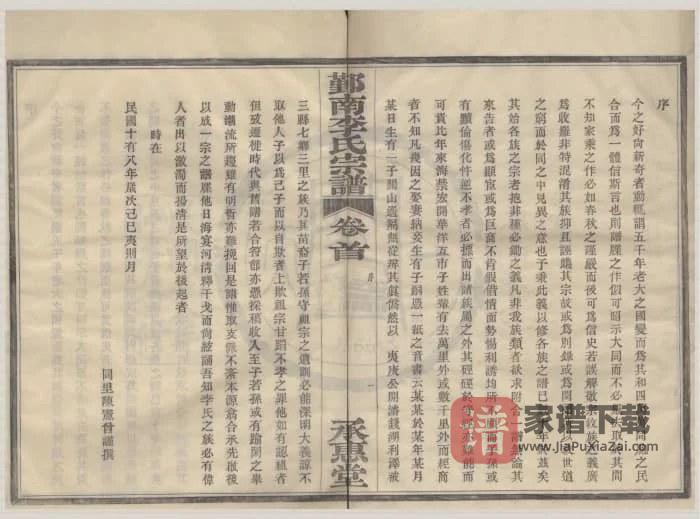 序
今之好向新奇者動輒謂五千年老大之國變而為其和四
之民
合而為一體信斯言也則譜牒之作假可昭示大同而不必
取其間
不知家乘之作必如春秋之謹嚴而後可為信史若誤解敬宗收族之義廣
為收羅非特混淆其族抑且誣衊其宗故或為別錄或為
世道
之窮而於同之中見異之意也予秉此義以修各族之譜已
年
矣
其始各族之宗者抱非種必鋤之義凡非我族類者欲求附合一譜無論其
來告者或為顯宦或為巨商不肯假借情面勢惕利誘均所不顧而子孫或
有顯倫傷化忤逆不孝者必摽而出諸族屬之外其硜硜於
能而
可貴比年來海禁宏開華洋互市子姓輩有去萬里外或數千里外而經商
者不知凡幾因之娶妻納妾生有子嗣憑一紙之音書云某某於某年某月
某日生有一子關山遙隔無從辨其真偽然以 夷庚公開濬錢湖利澤被
三縣七鄉三里之族乃其苗裔子若孫守祖宗之遺訓必能深明大義諒不
取他人子以為己子而以自欺者上欺祖宗甘蹈不孝之罪他如有認祖者
但或遷徙時代與舊譜若合符節亦憑採稿收入至子若孫或有踰閑之舉
動潮流所趨雖有明哲亦難挽回是譜惟取支派不紊本源翕合承先啟後
以成一宗之譜牒他日海宴河清釋干戈而尚絃誦吾知李氏之族必有偉
人者出以激濁而揚清是所望於後起者
時在
民國十有八年歲次己巳夷則月
同里陳憲曾謹撰
鄞南李氏宗譜
卷首
序
一
承惠堂
譜
家谱下载
www.JiaPuXiaZai.com